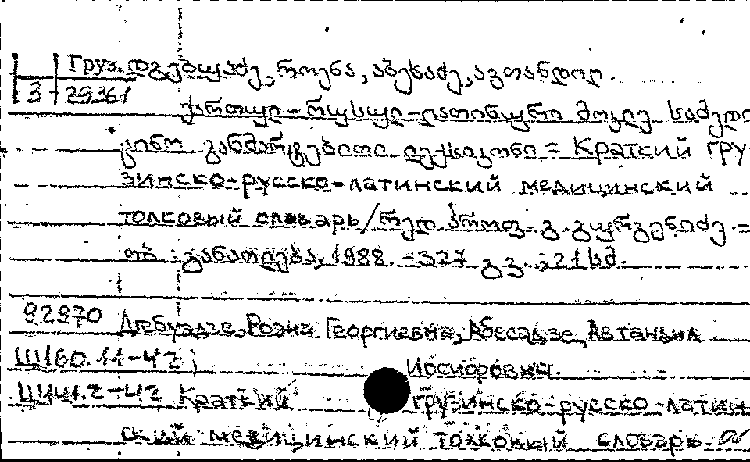 Груз. დგებუაძე, როენა, აბესაძე, ავთანდილ.
3-29361
ქართულ-რუსულ-ლათინური მოკლე სამედი
ცინო განმარტებითი ლექსიკონი = Краткий гру-
зинско-русско-латинский медицинский
толковый словарь / რედ. პროფ. გ. გ. =
თბ.: განათლება, 1988. - 327 გვ. ; 21 სმ.
92970 Дгебуадзе, Роэна Георгиевна, Абесадзе, Автандил
Ш160.11-42 Иосифович.
Ш141.2-42 Краткий грузинско-русско-латин-
ский медицинский толковый словарь.